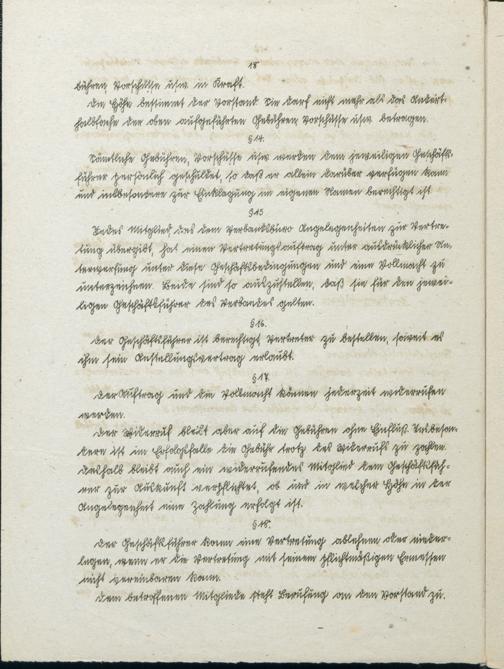 18
bühren, Vorschüsse usw. in Kraft.
Die Höhe bestimmt der Vorstand. Sie darf nicht mehr als das Andert-
halbfache der oben aufgeführten Gebühren, Vorschüsse usw. betragen.
§ 14.
Sämtliche Gebühren, Vorschüsse usw. werden dem jeweiligen Geschäfts-
führer persönlich geschuldet, so daß er allein darüber verfügen kann
und insbesondere zur Einklagung im eigenen Namen berechtigt ist.
§ 15
Jedes Mitglied, das dem Verbandsbüro Angelegenheiten zur Vertre-
tung übergibt, hat einen Vertretungsauftrag unter ausdrücklicher Un-
terwerfung unter diese Geschäftsbedingungen und eine Vollmacht zu
unterzeichnen. Beide sind so auszustellen, daß sie für den jewei-
ligen Geschäftsführer des Verbandes gelten.
§ 16.
Der Geschäftsführer ist berechtigt, Vertreter zu bestellen, soweit es
ihm sein Anstellungsvertrag erlaubt.
§ 17.
Der Auftrag und die Vollmacht können jederzeit widerrufen
werden.
Der Widerruf bleibt aber auf die Gebühren ohne Einfluß. Insbeson-
dere ist im Erfolgsfalle die Gebühr trotz des Widerrufs zu zahlen.
Deshalb bleibt auch ein widerrufendes Mitglied dem Geschäftsfüh-
rer zur Auskunft verpflichtet, ob und in welcher Höhe in der
Angelegenheit eine Zahlung erfolgt ist.
§ 18.
Der Geschäftsführer kann eine Vertretung ablehnen oder nieder-
legen, wenn er die Vertretung mit seinem pflichtmäßigen Ermessen
nicht vereinbaren kann.
Dem betroffenen Mitgliede steht Berufung an den Vorstand zu.